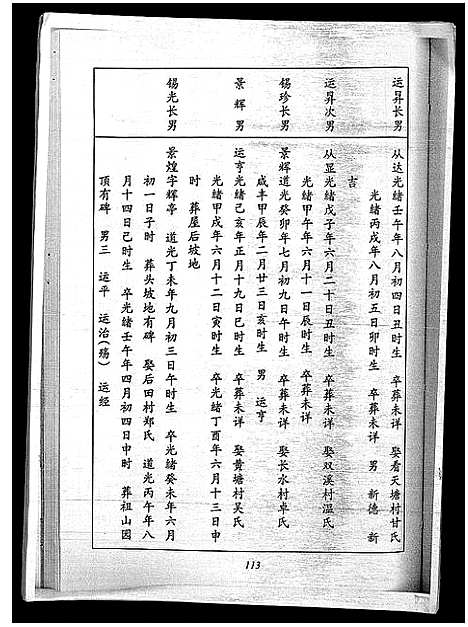 运昇长男
从达光緒壬午年八月初四日丑时生 卒葬未详 娶看天塘村甘氏
光緒丙戌年八月初五日卯时生 卒葬未详 男 新德 新
吉
运昇次男
从显光緒戊子年六月二十日丑时生 卒葬未详 娶双溪村温氏
光緒甲午年六月十一日辰时生 卒葬未详
锡珍长男
景辉道光癸卯年七月初九日午时生 卒葬未详 娶长水村卓氏
咸丰甲辰年二月廿三日亥时生 男 运亨
景辉 男
运亨光緒己亥年正月十九日巳时生 卒葬未详 娶黄塘村吴氏
光緒甲戌年六月十二日寅时生 卒光緒丁酉年六月十三日申
时 葬屋后坡地
锡光长男
景煌字辉亭 道光丁未年九月初三日午时生 卒光緒癸未年六月
初一日子时 葬头坡地有碑 娶后田村郑氏 道光丙午年八
月十四日己时生 卒光緒壬午年四月初四日申时 葬祖山园
顶有碑 男三 运平 运治(殇) 运经
113